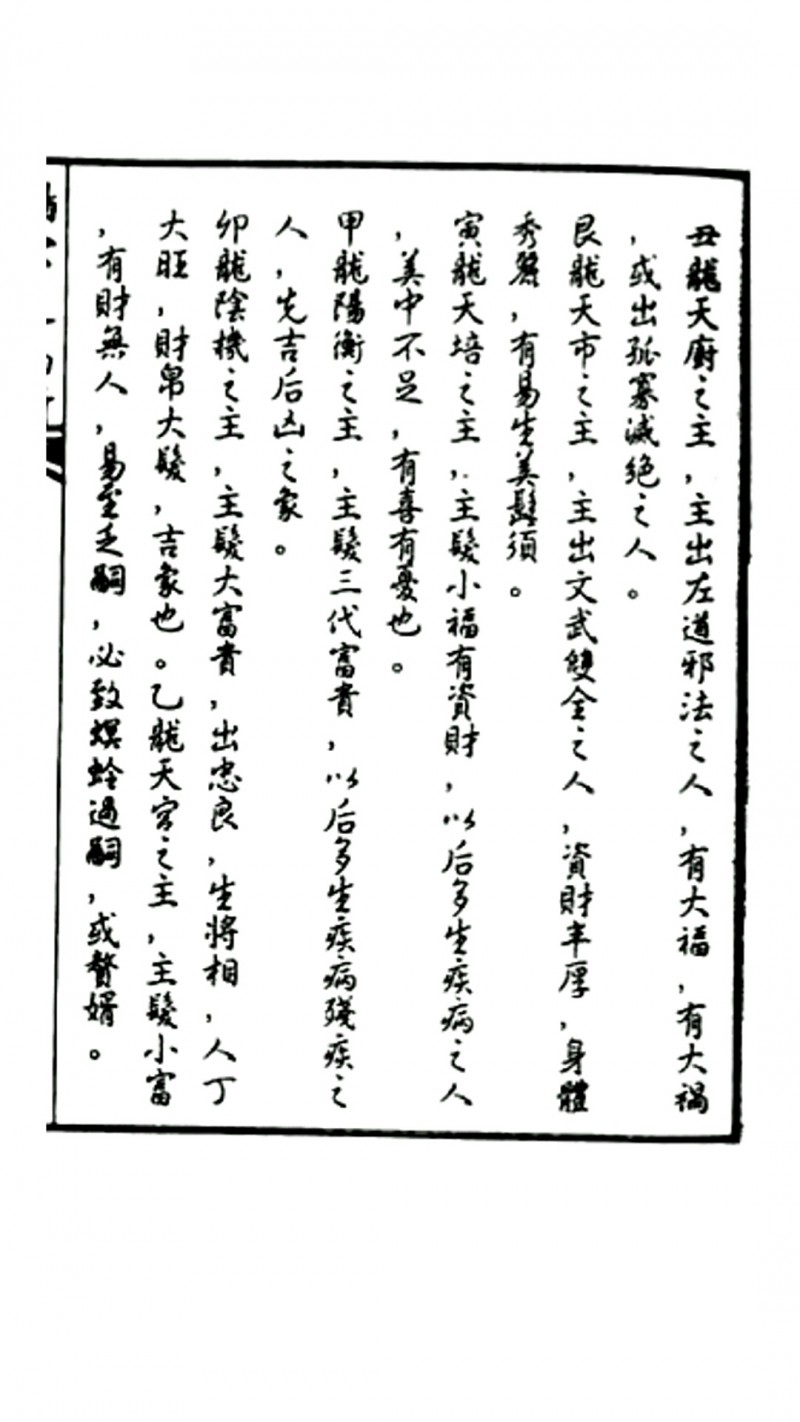 丑龍天廚之主，主出左道邪法之人，有大福，有大禍
，或出孤寡滅絕之人。
艮龍天市之主，主出文武雙全之人，資財丰厚，身體
秀麗，有易生美髭須。
寅龍天培之主，主髮小福有資財，以后多生疾病之人
，美中不足，有喜有憂也。
甲龍陽衡之主，主髮三代富貴，以后多生疾病殘疾之
人，先吉后凶之象。
卯龍陰機之主，主髮大富貴，出忠良，生將相，人丁
大旺，財帛大髮，吉象也。乙龍天官之主，主髮小富
，有財無人，易至乏嗣，必致螟蛉過嗣，或贅婿。